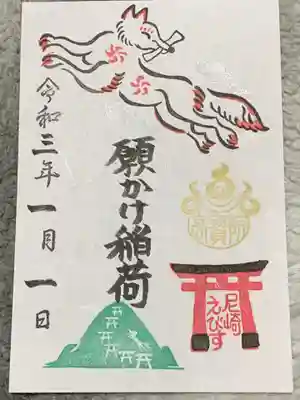 願かけ稲荷
令和三年一月一日
尼崎
えびす